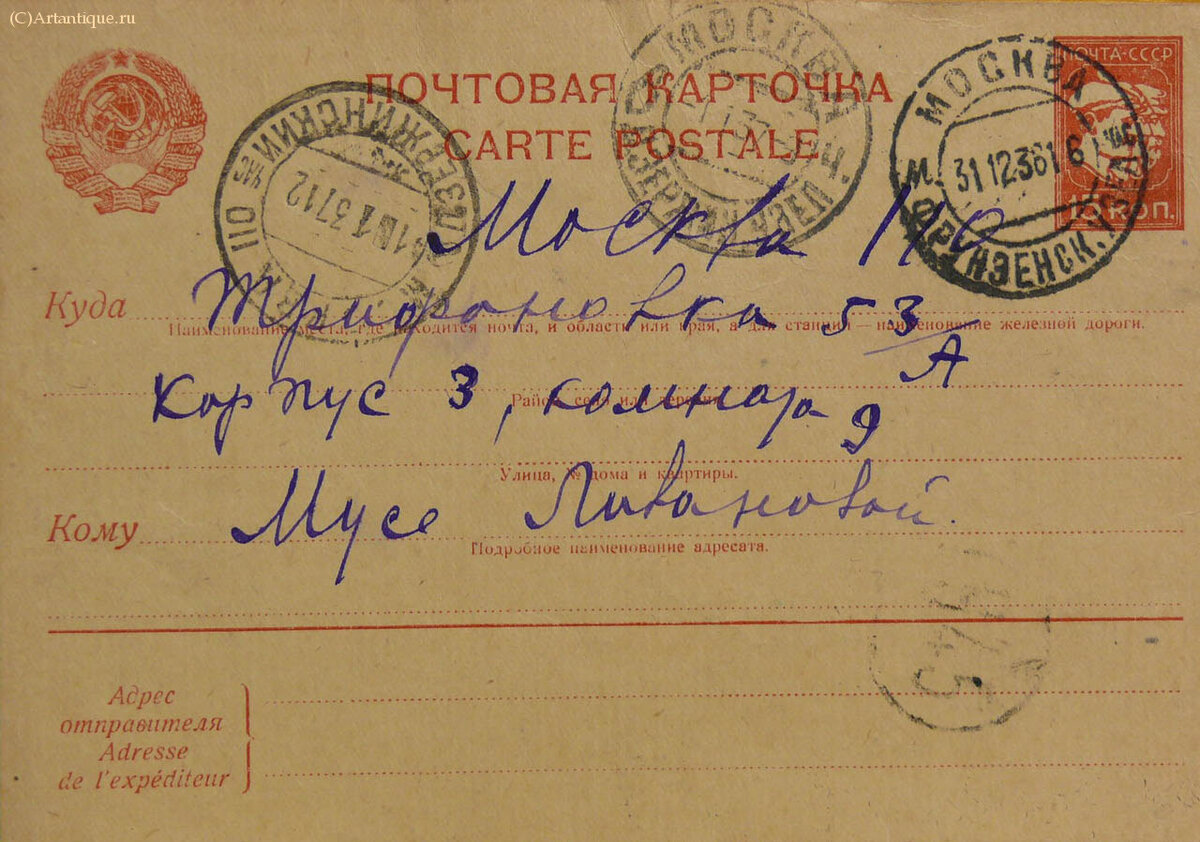 (C)Artantique.ru
ПОЧТА-СССР
ПОЧТОВАЯ КАРТОЧКА
CARTE POSTALE
15 КОП.
МОСКВА
31 12 36 16
М. ФРУНЗЕНСК. УЗЕЛ
МОСКВА
ДЗЕРЖИНСКИЙ
Москва 110
Куда Трифоновка 53/А
Наименование места, где находится почта, и области или края, а для станций — наименование железной дороги.
Корпус 3, комната 9
Район, село или деревня.
Улица, № дома и квартиры.
Кому Мусе Ливановой.
Подробное наименование адресата.
Адрес
отправителя
Adresse
de l'expéditeur